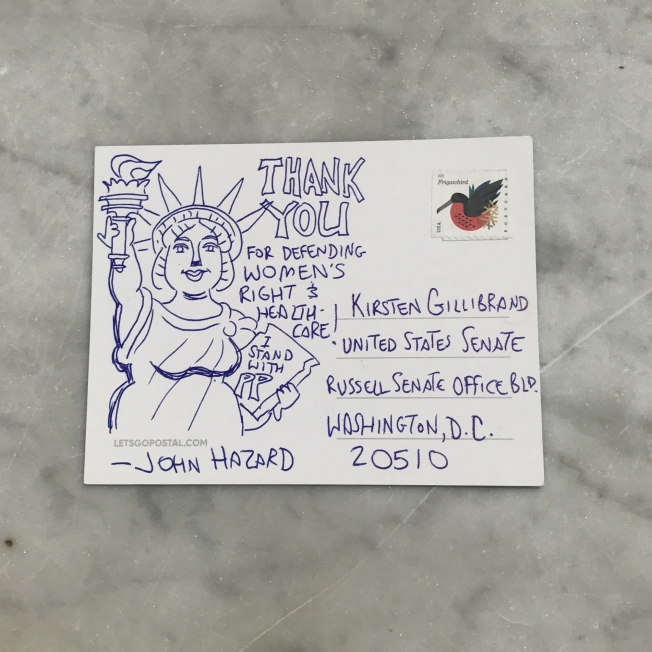 THANK
YOU
FOR DEFENDING
WOMEN'S
RIGHT &
HEALTH-
CARE!
I
STAND
WITH
PP
LETSGOPOSTAL.COM
—JOHN HAZARD
Frigatebird
USA
POSTCARD
KIRSTEN GILLIBRAND
UNITED STATES SENATE
RUSSELL SENATE OFFICE BLD.
WASHINGTON, D.C.
20510